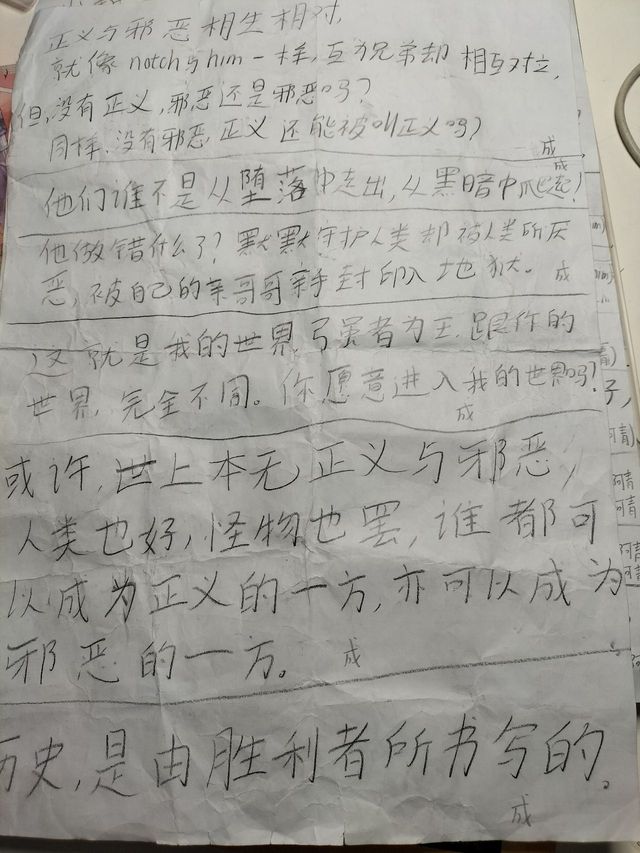 正义与邪恶相生相对,
就像notch与him一样,互为兄弟却相互对立,
但,没有正义,邪恶还是邪恶吗?
同样,没有邪恶,正义还能被叫正义吗?
成
他们谁不是从堕落中走出,从黑暗中爬起!
成
他做错什么了?默默守护人类却被人类所厌
恶,被自己的亲哥哥亲手封印入地狱。 成
这就是我的世界,强者为王.跟你的
世界,完全不同。你愿意进入我的世界吗?
成
或许,世上本无正义与邪恶,
人类也好,怪物也罢,谁都可
以成为正义的一方,亦可以成为
邪恶的一方。 成
历史,是由胜利者所书写的。
成